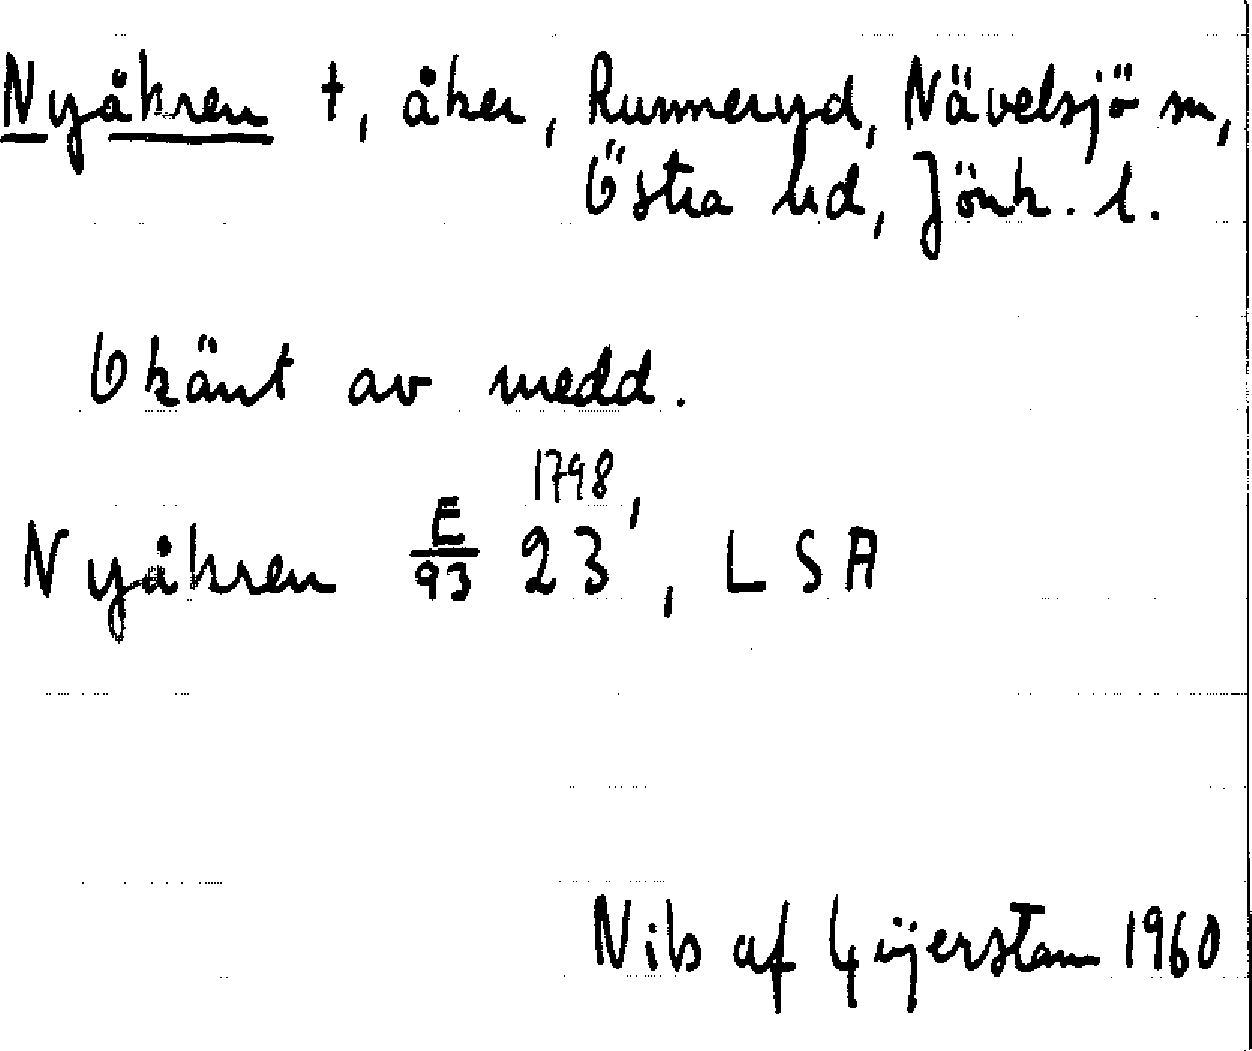 Nyåkren †, åker, Runneryd, Nävelsjö sn,
Östra hd, Jönk. l.
Okänt av medd.
1798,
Nyåkren E/93 23, LSA
Nils af Geijerstam 1960